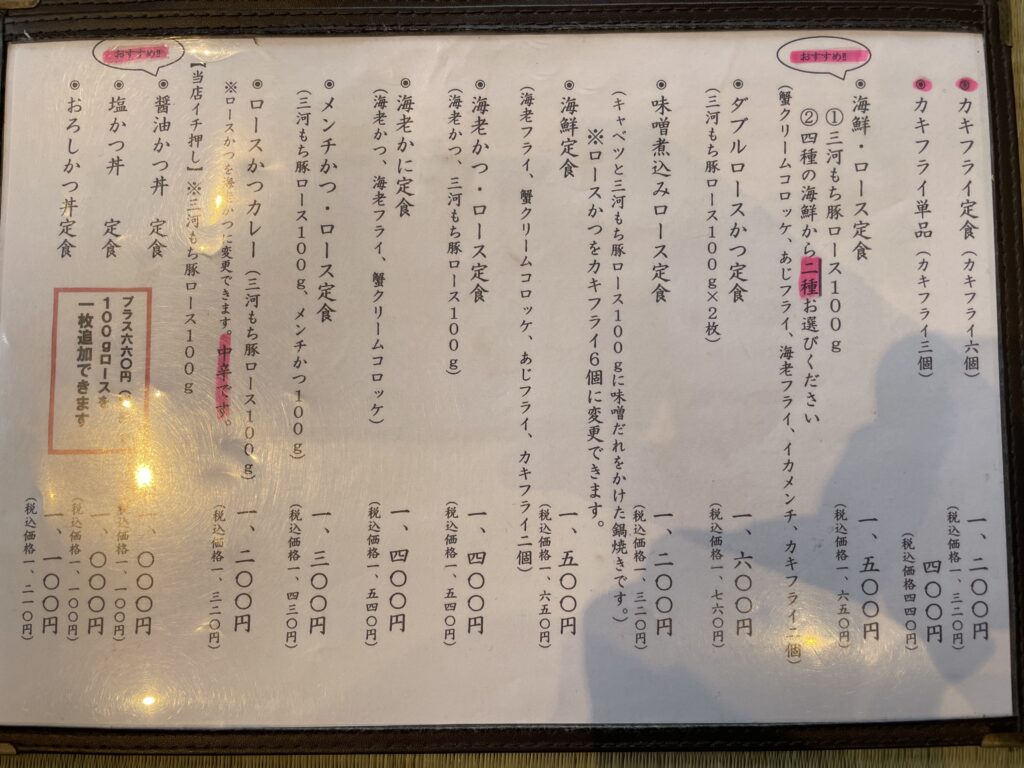 ◉カキフライ定食（カキフライ六個）
一、二〇〇円
（税込価格一、三二〇円）
◉カキフライ単品（カキフライ三個）
四〇〇円
（税込価格四四〇円）
おすすめ!!
◉海鮮・ロース定食
①三河もち豚ロース１００ｇ
②四種の海鮮から二種お選びください
（蟹クリームコロッケ、あじフライ、海老フライ、イカメンチ、カキフライ二個）
一、五〇〇円
（税込価格一、六五〇円）
◉ダブルロースかつ定食
（三河もち豚ロース１００ｇ×２枚）
一、六〇〇円
（税込価格一、七六〇円）
◉味噌煮込みロース定食
（キャベツと三河もち豚ロース１００ｇに味噌だれをかけた鍋焼きです。）
※ロースかつをカキフライ６個に変更できます。
一、二〇〇円
（税込価格一、三二〇円）
◉海鮮定食
（海老フライ、蟹クリームコロッケ、あじフライ、カキフライ二個）
一、五〇〇円
（税込価格一、六五〇円）
◉海老かつ・ロース定食
（海老かつ、三河もち豚ロース１００ｇ）
一、四〇〇円
（税込価格一、五四〇円）
◉海老かに定食
（海老かつ、海老フライ、蟹クリームコロッケ）
一、四〇〇円
（税込価格一、五四〇円）
◉メンチかつ・ロース定食
（三河もち豚ロース１００ｇ、メンチかつ１００ｇ）
一、三〇〇円
（税込価格一、四三〇円）
◉ロースかつカレー（三河もち豚ロース１００ｇ）
※ロースかつを海老かつに変更できます。中辛です。
一、二〇〇円
（税込価格一、三二〇円）
【当店イチ押し】※三河もち豚ロース１００ｇ
おすすめ!!
◉醤油かつ丼 定食
〇〇〇円
（税込価格一、一〇〇円）
◉塩かつ丼 定食
一、〇〇〇円
（税込価格一、一〇〇円）
◉おろしかつ丼定食
一、一〇〇円
（税込価格一、二一〇円）
プラス六六〇円
１００ｇロースを
一枚追加できます